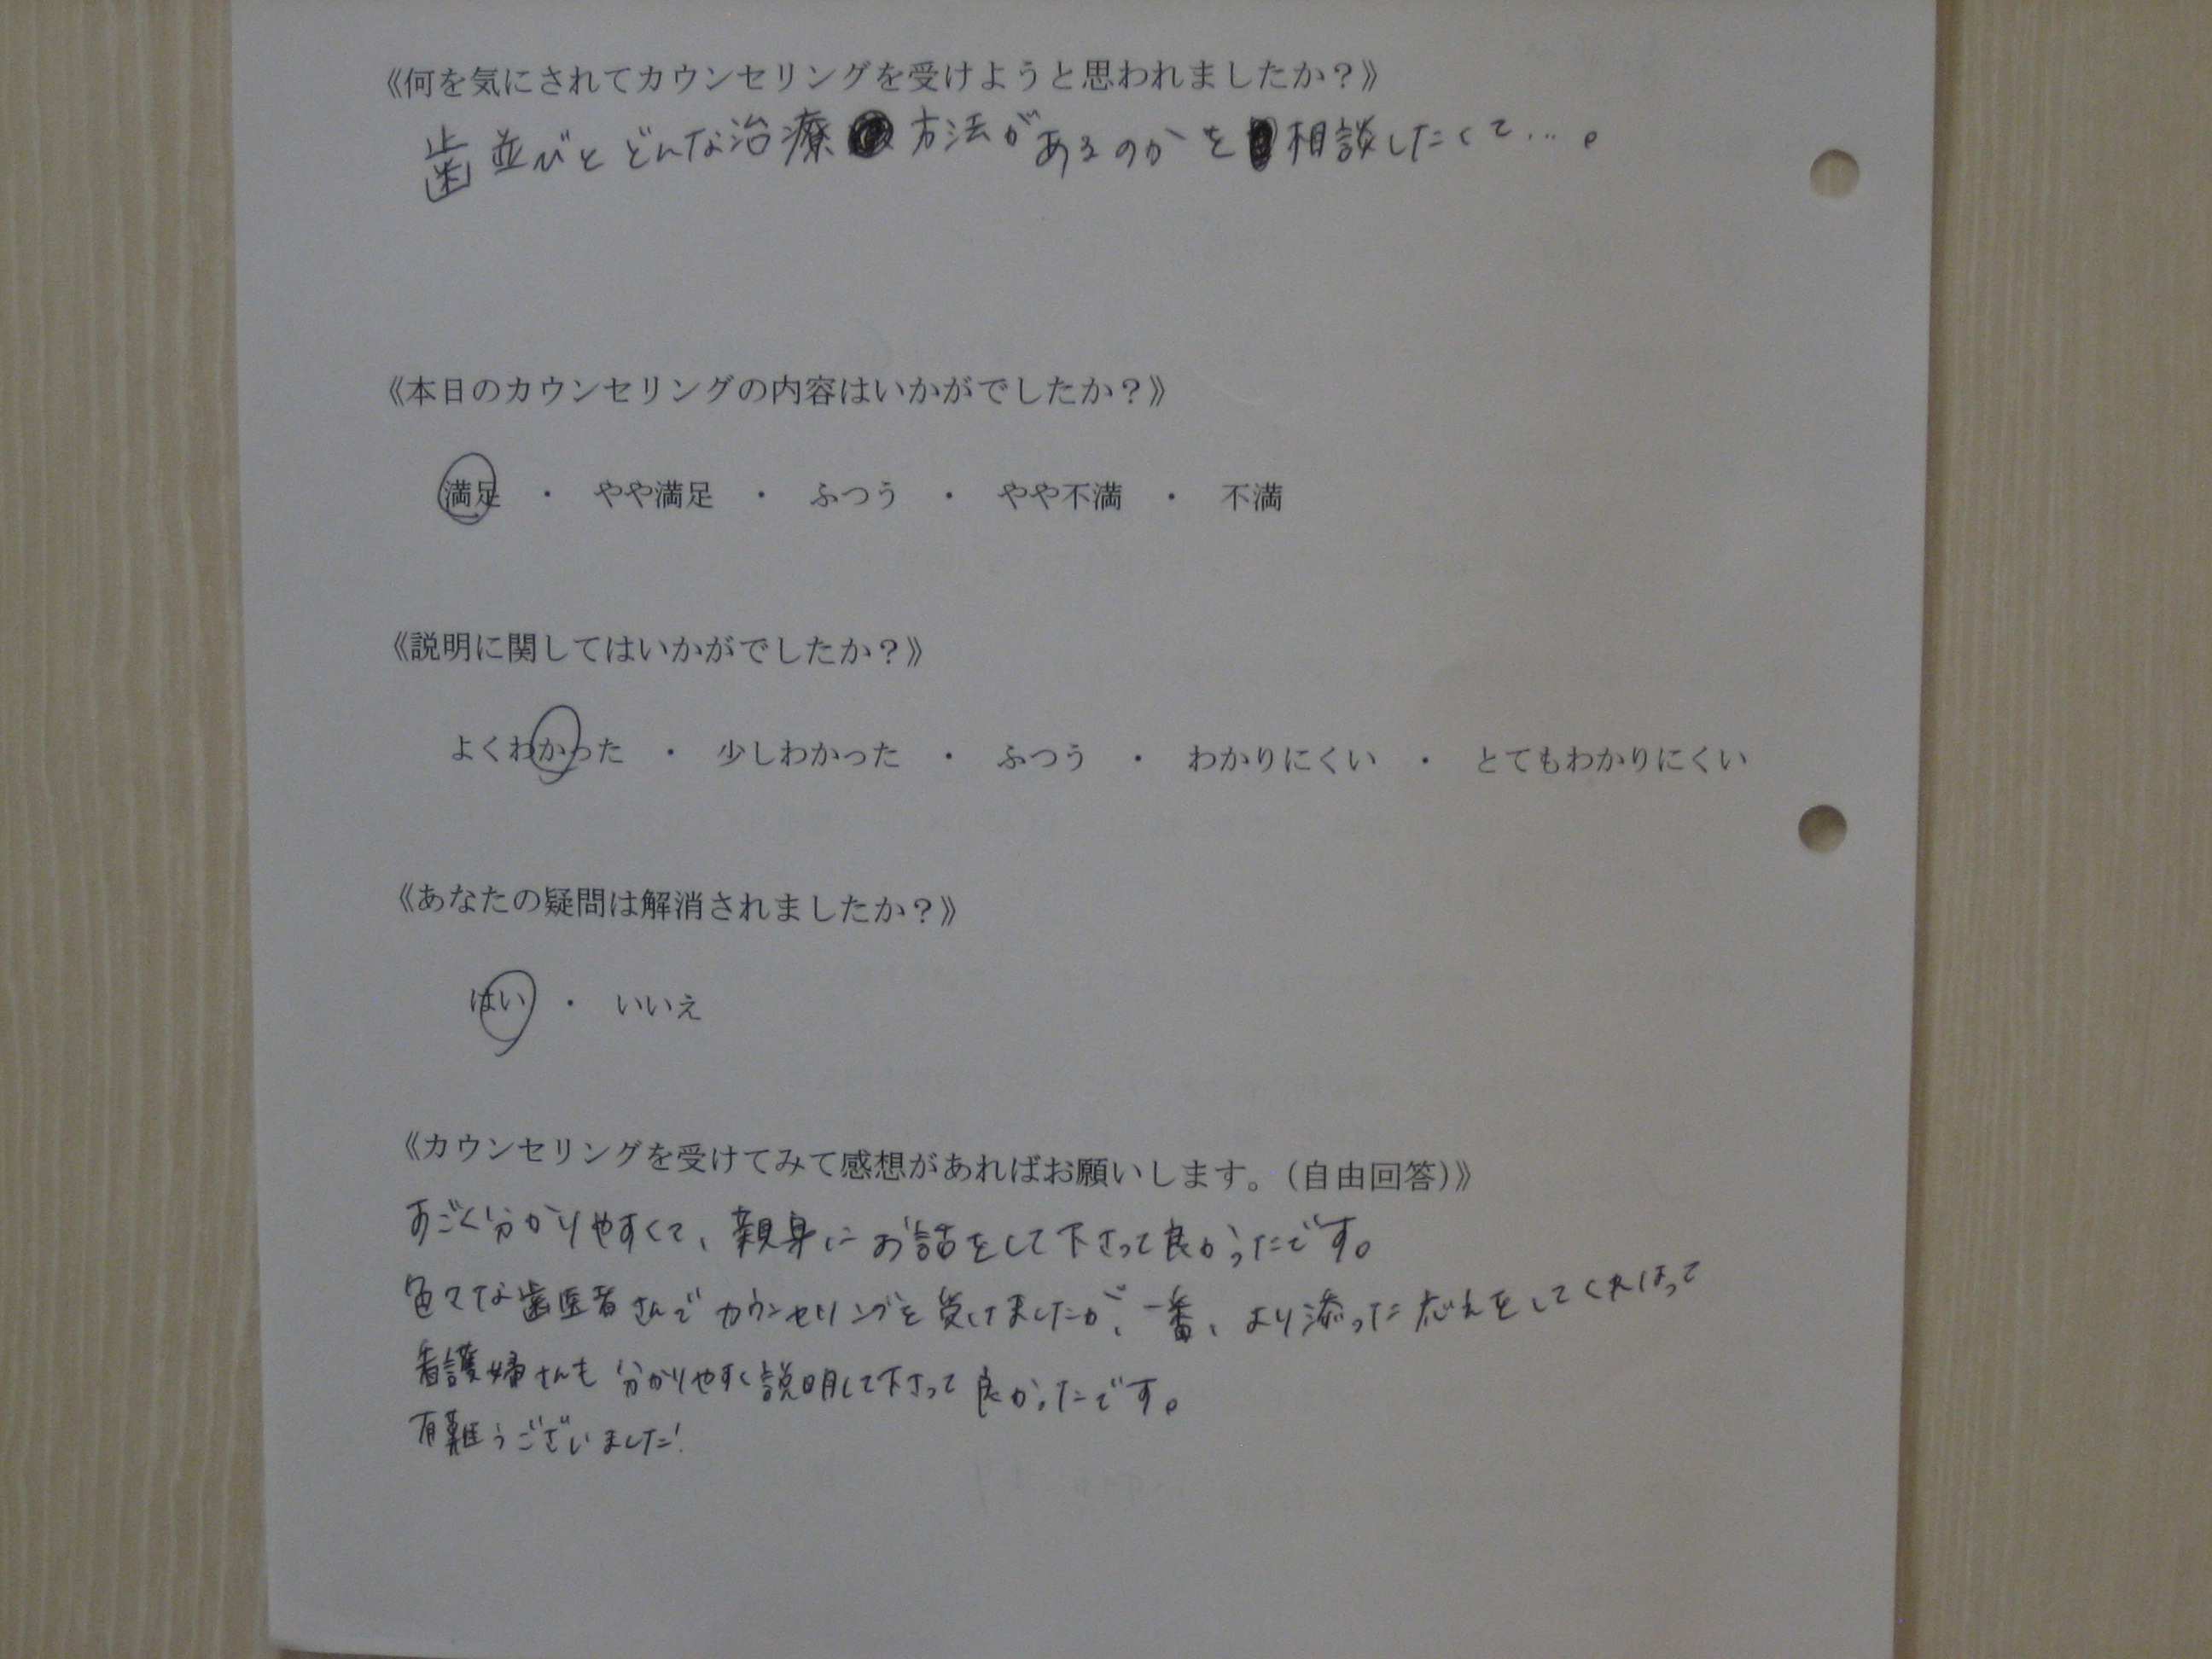 《何を気にされてカウンセリングを受けようと思われましたか？》
歯並びとどんな治療方法があるのかを相談したくて…。
《本日のカウンセリングの内容はいかがでしたか？》
満足 ・ やや満足 ・ ふつう ・ やや不満 ・ 不満
《説明に関してはいかがでしたか？》
よくわかった ・ 少しわかった ・ ふつう ・ わかりにくい ・ とてもわかりにくい
《あなたの疑問は解消されましたか？》
はい ・ いいえ
《カウンセリングを受けてみて感想があればお願いします。(自由回答)》
すごく分かりやすくて、親身にお話をして下さって良かったです。
色々な歯医者さんでカウンセリングを受けましたが、一番、より添った応えをしてくれはって
看護婦さんも分かりやすく説明して下さって良かったです。
有難うございました!